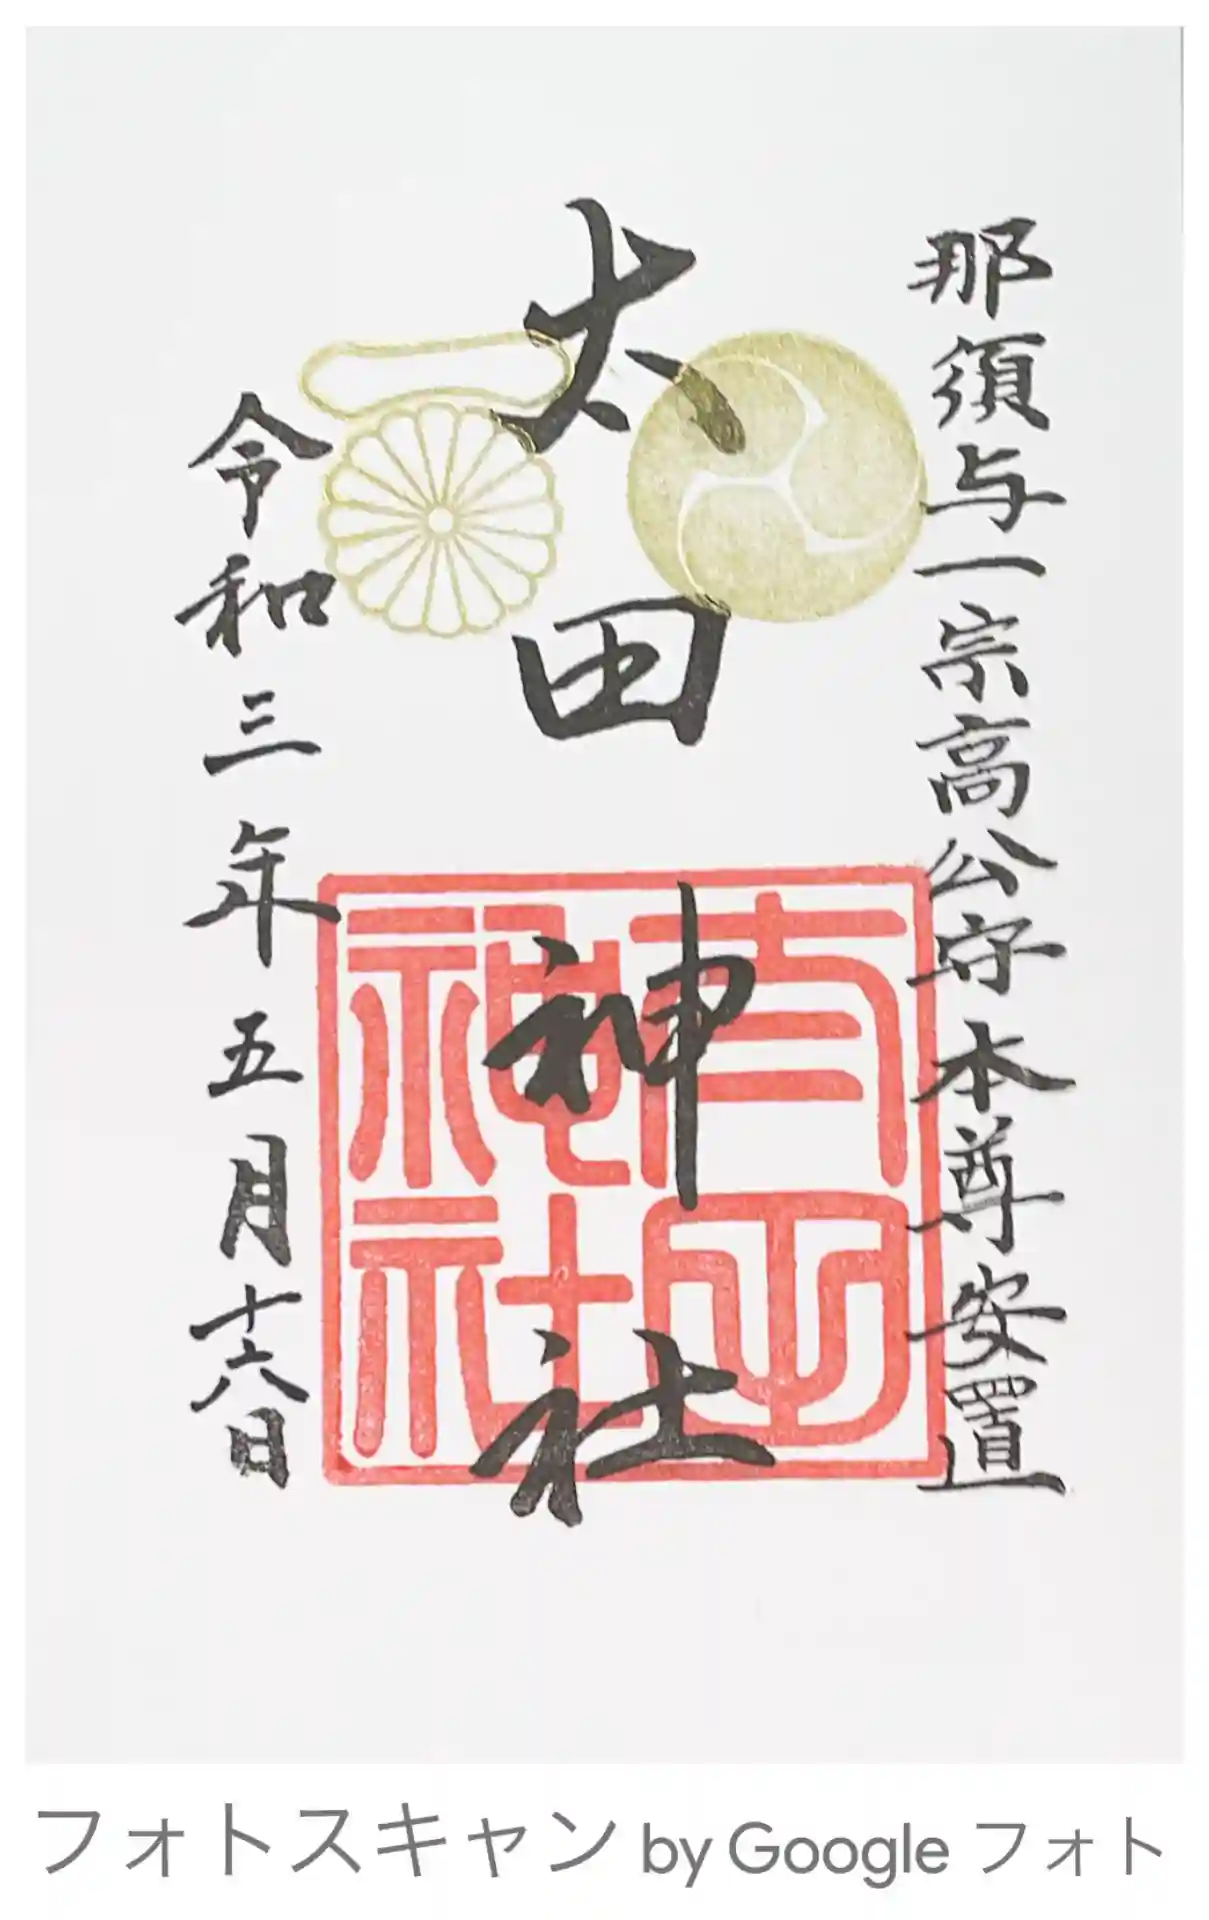 那須与一宗高公守本尊安置
太田神社
神社
令和三年五月十六日
フォトスキャン by Google フォト